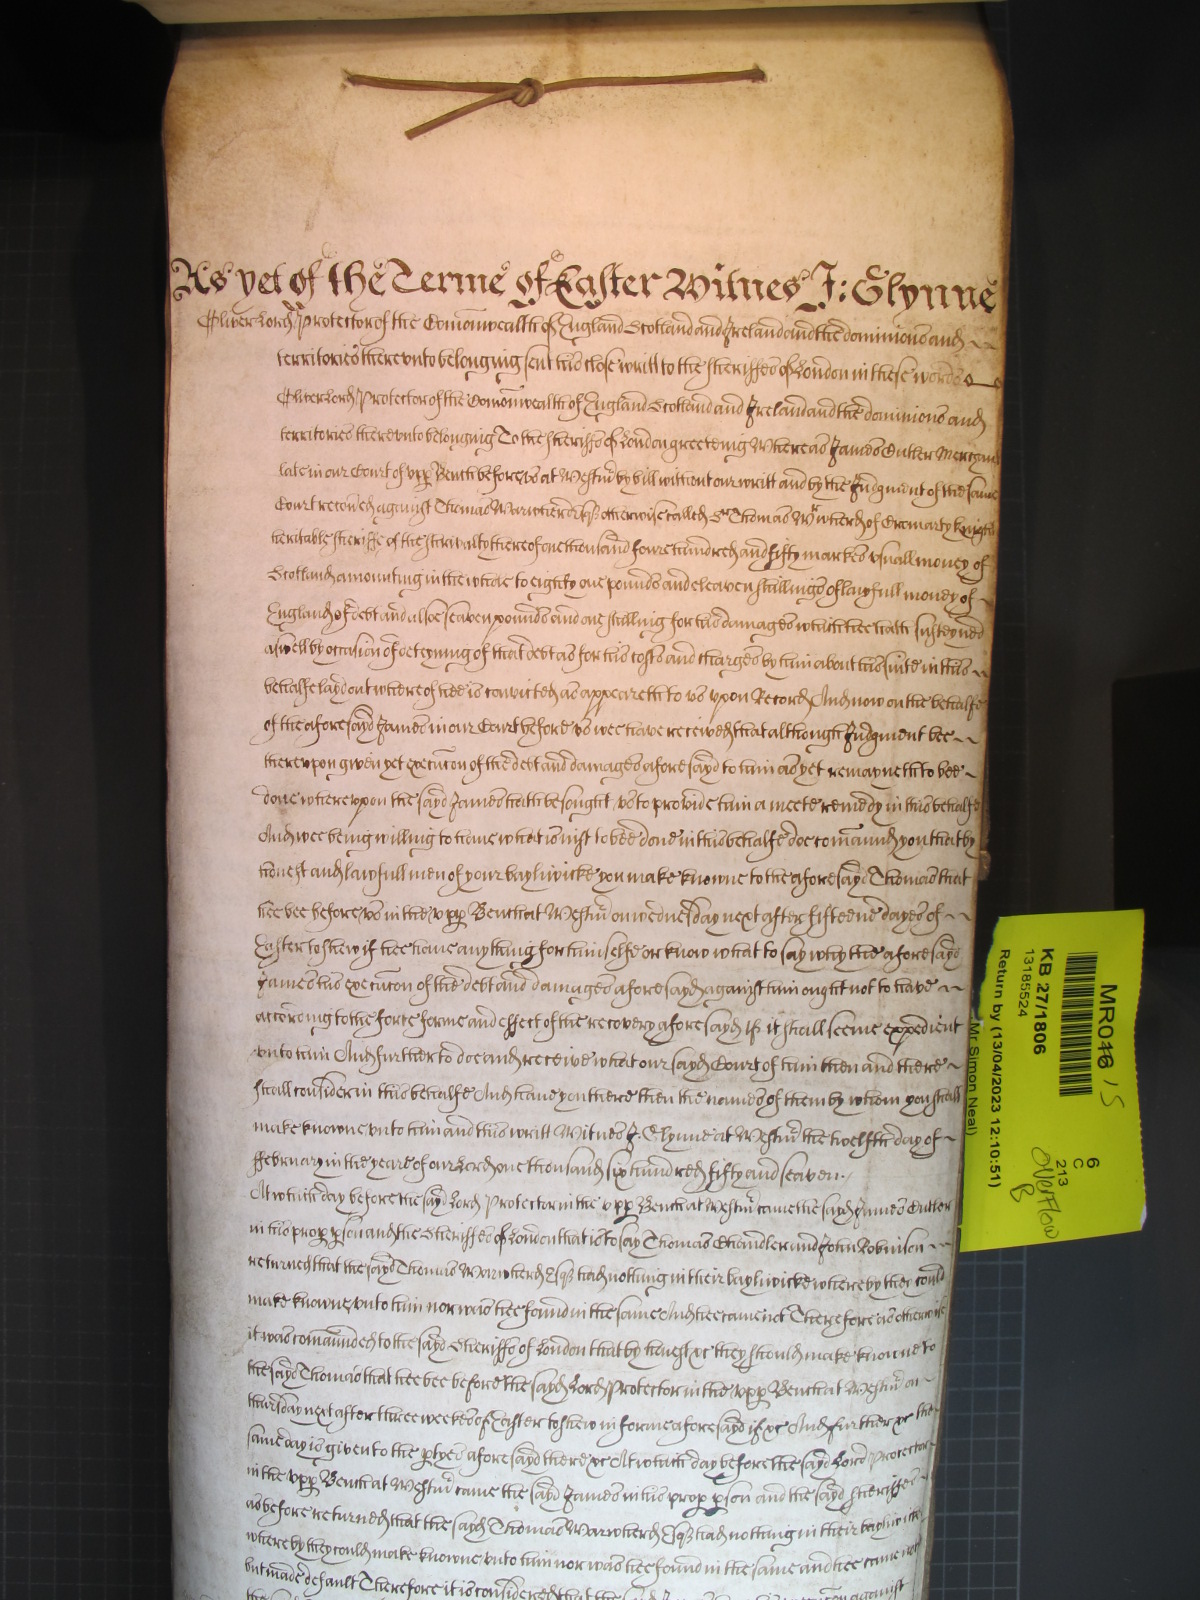 As yet of the Terme of Easter Witnes J: Glynne
Oliver Lord Protector of the Comonwealth of England Scotland and Ireland and the dominions and
territories thereunto belonging sent his close writt to the sheriffes of London in these words
Oliver Lord Protector of the Comonwealth of England Scotland and Ireland and the dominions and
territories thereunto belonging To the sheriffs of London greeteing Whereas James Butler Merchant
late in our Court of upp Bench before us at Westmr by bill without our writt and by the Judgment of the same
Court recoved against Thomas Esqr otherwise called Sr Thomas of Cromarty knight
heritable sheriffe of the shrivalty thereof one thousand foure hundred and fifty markes usuall money of
Scotland amounting in the whole to eighty one pounds and eleaven shillings of lawfull money of
England of debt and alsoe seaven pounds and one shilling for his damages which hee hath susteyned
aswell by occasion of deteyning of that debt as for his costs and charges by him about his suite in this
behalfe layd out whereof hee is convicted as appeareth to us upon Record And now on the behalfe
of the aforesayd James in our Court before us wee have received that although Judgment bee
thereupon given yet execucon of the debt and damages aforesayd to him as yet remayneth to bee
done whereupon the sayd James hath besought us to provide him a meete remedy in this behalfe
And wee being willing to have what is iust to bee done in this behalfe doe comaund you that by
honest and lawfull men of your bayliwicke you make knowne to the aforesayd Thomas that
hee bee before us in the upp Bench at Westmr on wednesday next after fifteene dayes of
Easter to shew if hee have any thing for himselfe or know what to say why the aforesayd
James his execucon of the debt and damages aforesayd against him ought not to have
according to the force forme and effect of the recovery aforesayd if it shall seeme expedient
unto him And further to doe and receive what our sayd Court of him then and there
shall consider in this behalfe And have you there then the names of them by whom you shall
make knowne unto him and this writt Witnes J: Glynne at Westmr the twelfth day of
ffebruary in the yeare of our Lord one thousand six hundred fifty and seaven.
At which day before the sayd Lord Protector in the upp Bench at Westmr came the sayd James Butler
in his prop pson and the Sheriffes of London that is to say Thomas Chandler and John Robinson
returned that the sayd Thomas Esqr had nothing in their bayliwicke whereby they could
make knowne unto him nor was hee found in the same And hee came not Therefore as otherwise
it was comaunded to the sayd Sheriffs of London that by honest &c they should make knowne to
the sayd Thomas that hee bee before the sayd Lord Protector in the upp Bench at Westmr on
thursday next after three weekes of Easter to shew in forme aforesayd if &c And further &c the
same day is given to the ptyes aforesayd there &c At which day before the sayd Lord Protector
in the upp Bench at Westmr came the sayd James in his prop pson and the sayd sheriffes
as before returned that the sayd Thomas Esqr had nothing in their bayliwicke
whereby they could make knowne unto him nor was hee found in the same and hee came not
but made default Therefore it is considered that the sayd against
MR016 / S
KB 27/1806
13185524
Return by (13/04/2023 12:10:51)
(Mr Simon Neal)
6
C
213
overflow
B